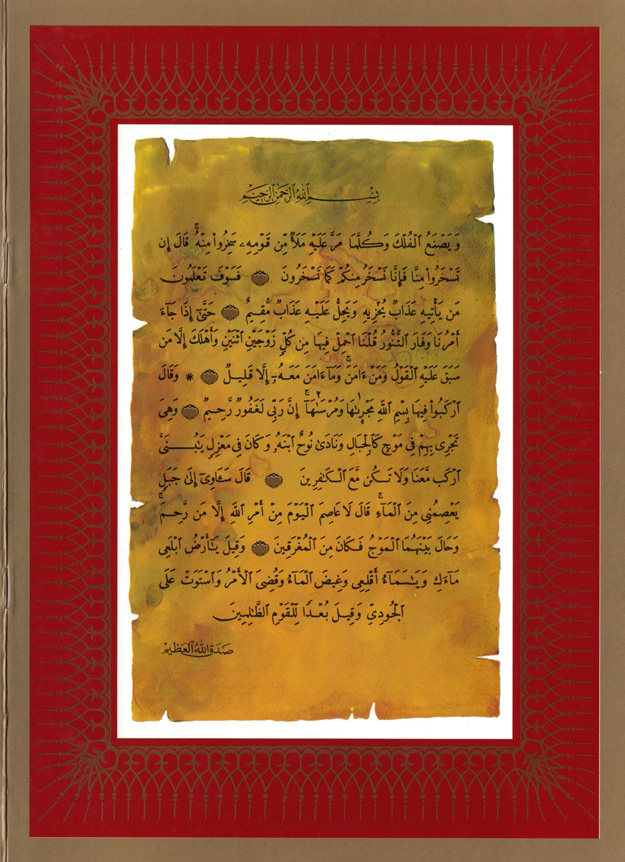 بِسْمِ اللَّهِ الرَّحْمَنِ الرَّحِيمِ
وَيَصْنَعُ ٱلْفُلْكَ وَكُلَّمَا مَرَّ عَلَيْهِ مَلَأٌ مِّن قَوْمِهِۦ سَخِرُوا۟ مِنْهُ ۚ قَالَ إِن
تَسْخَرُوا۟ مِنَّا فَإِنَّا نَسْخَرُ مِنكُمْ كَمَا تَسْخَرُونَ ۝ فَسَوْفَ تَعْلَمُونَ
مَن يَأْتِيهِ عَذَابٌ يُخْزِيهِ وَيَحِلُّ عَلَيْهِ عَذَابٌ مُّقِيمٌ ۝ حَتَّىٰٓ إِذَا جَآءَ
أَمْرُنَا وَفَارَ ٱلتَّنُّورُ قُلْنَا ٱحْمِلْ فِيهَا مِن كُلٍّ زَوْجَيْنِ ٱثْنَيْنِ وَأَهْلَكَ إِلَّا مَن
سَبَقَ عَلَيْهِ ٱلْقَوْلُ وَمَنْ ءَامَنَ ۚ وَمَآ ءَامَنَ مَعَهُۥٓ إِلَّا قَلِيلٌ ۝ * وَقَالَ
ٱرْكَبُوا۟ فِيهَا بِسْمِ ٱللَّهِ مَجْر۪ىٰهَا وَمُرْسَىٰهَآ ۚ إِنَّ رَبِّى لَغَفُورٌ رَّحِيمٌ ۝ وَهِىَ
تَجْرِى بِهِمْ فِى مَوْجٍ كَٱلْجِبَالِ وَنَادَىٰ نُوحٌ ٱبْنَهُۥ وَكَانَ فِى مَعْزِلٍ يَٰبُنَىَّ
ٱرْكَب مَّعَنَا وَلَا تَكُن مَّعَ ٱلْكَٰفِرِينَ ۝ قَالَ سَـَٔاوِىٓ إِلَىٰ جَبَلٍ
يَعْصِمُنِى مِنَ ٱلْمَآءِ ۚ قَالَ لَا عَاصِمَ ٱلْيَوْمَ مِنْ أَمْرِ ٱللَّهِ إِلَّا مَن رَّحِمَ ۚ
وَحَالَ بَيْنَهُمَا ٱلْمَوْجُ فَكَانَ مِنَ ٱلْمُغْرَقِينَ ۝ وَقِيلَ يَٰٓأَرْضُ ٱبْلَعِى
مَآءَكِ وَيَٰسَمَآءُ أَقْلِعِى وَغِيضَ ٱلْمَآءُ وَقُضِىَ ٱلْأَمْرُ وَٱسْتَوَتْ عَلَى
ٱلْجُودِىِّ وَقِيلَ بُعْدًا لِّلْقَوْمِ ٱلظَّٰلِمِينَ
صَدَقَ اللَّهُ العَظِيم